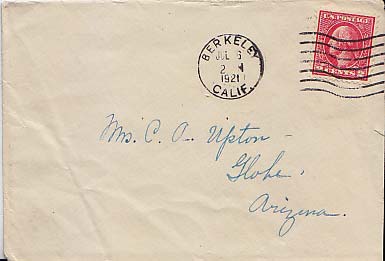 BERKELEY
JUL 6
2
1921
CALIF.
U.S. POSTAGE
2 CENTS 2
Mrs. C. A. Upton -
Globe.
Arizona.